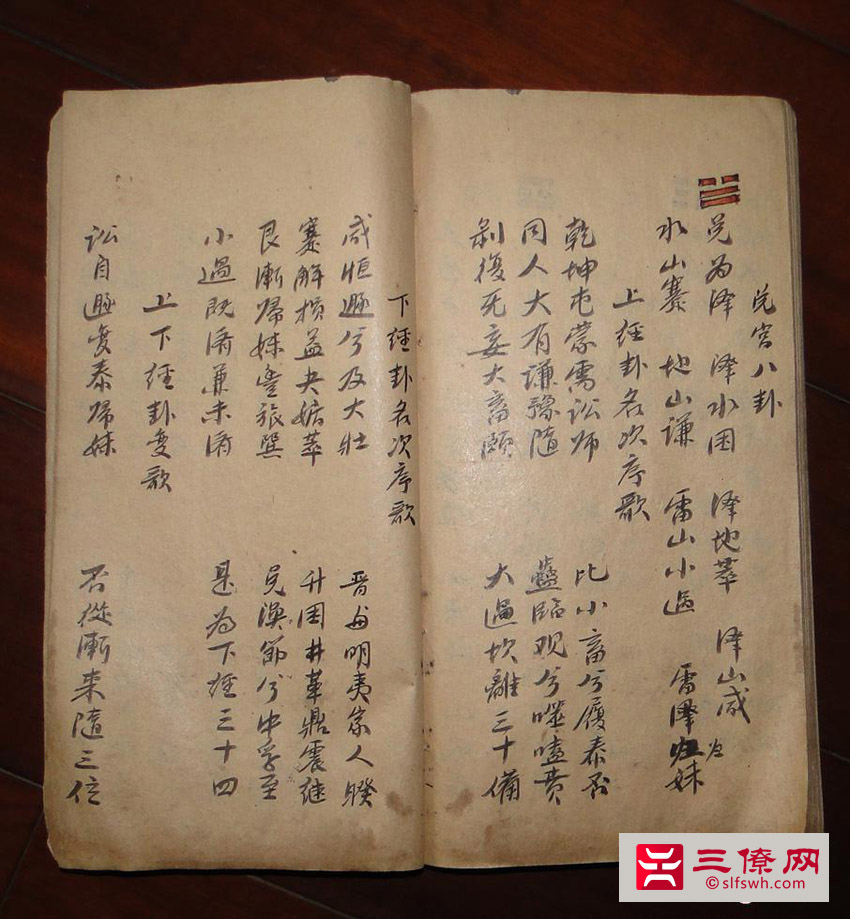 兑宮八卦
兑为泽　泽水困　泽地萃　泽山咸
水山蹇　地山谦　雷山小過　雷泽归妹
上經卦名次序歌
乾坤屯蒙需訟师　比小畜兮履泰否
同人大有谦豫隨　蠱临观兮噬嗑賁
剝復无妄大畜頤　大過坎離三十備
下經卦名次序歌
咸恒遯兮及大壯　晋與明夷家人睽
蹇解损益夬姤萃　升困井革鼎震继
艮漸歸妹豊旅巽　兑渙節兮中孚至
小過既濟兼未濟　是为下經三十四
上下經卦变歌
訟自遯变泰歸妹　否從漸来隨三位
三僚网
©slfswh.com